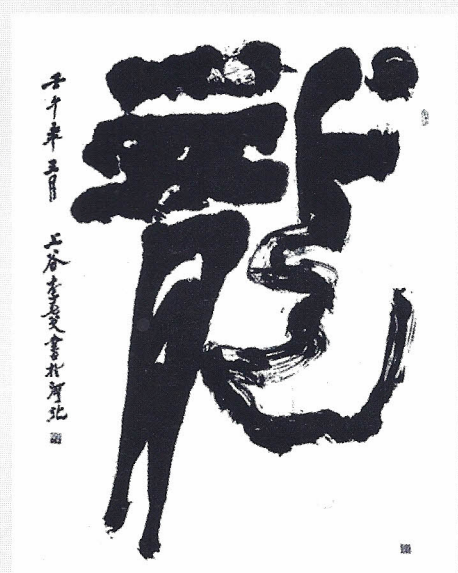 龍
壬午年五月 上谷李
書於河北